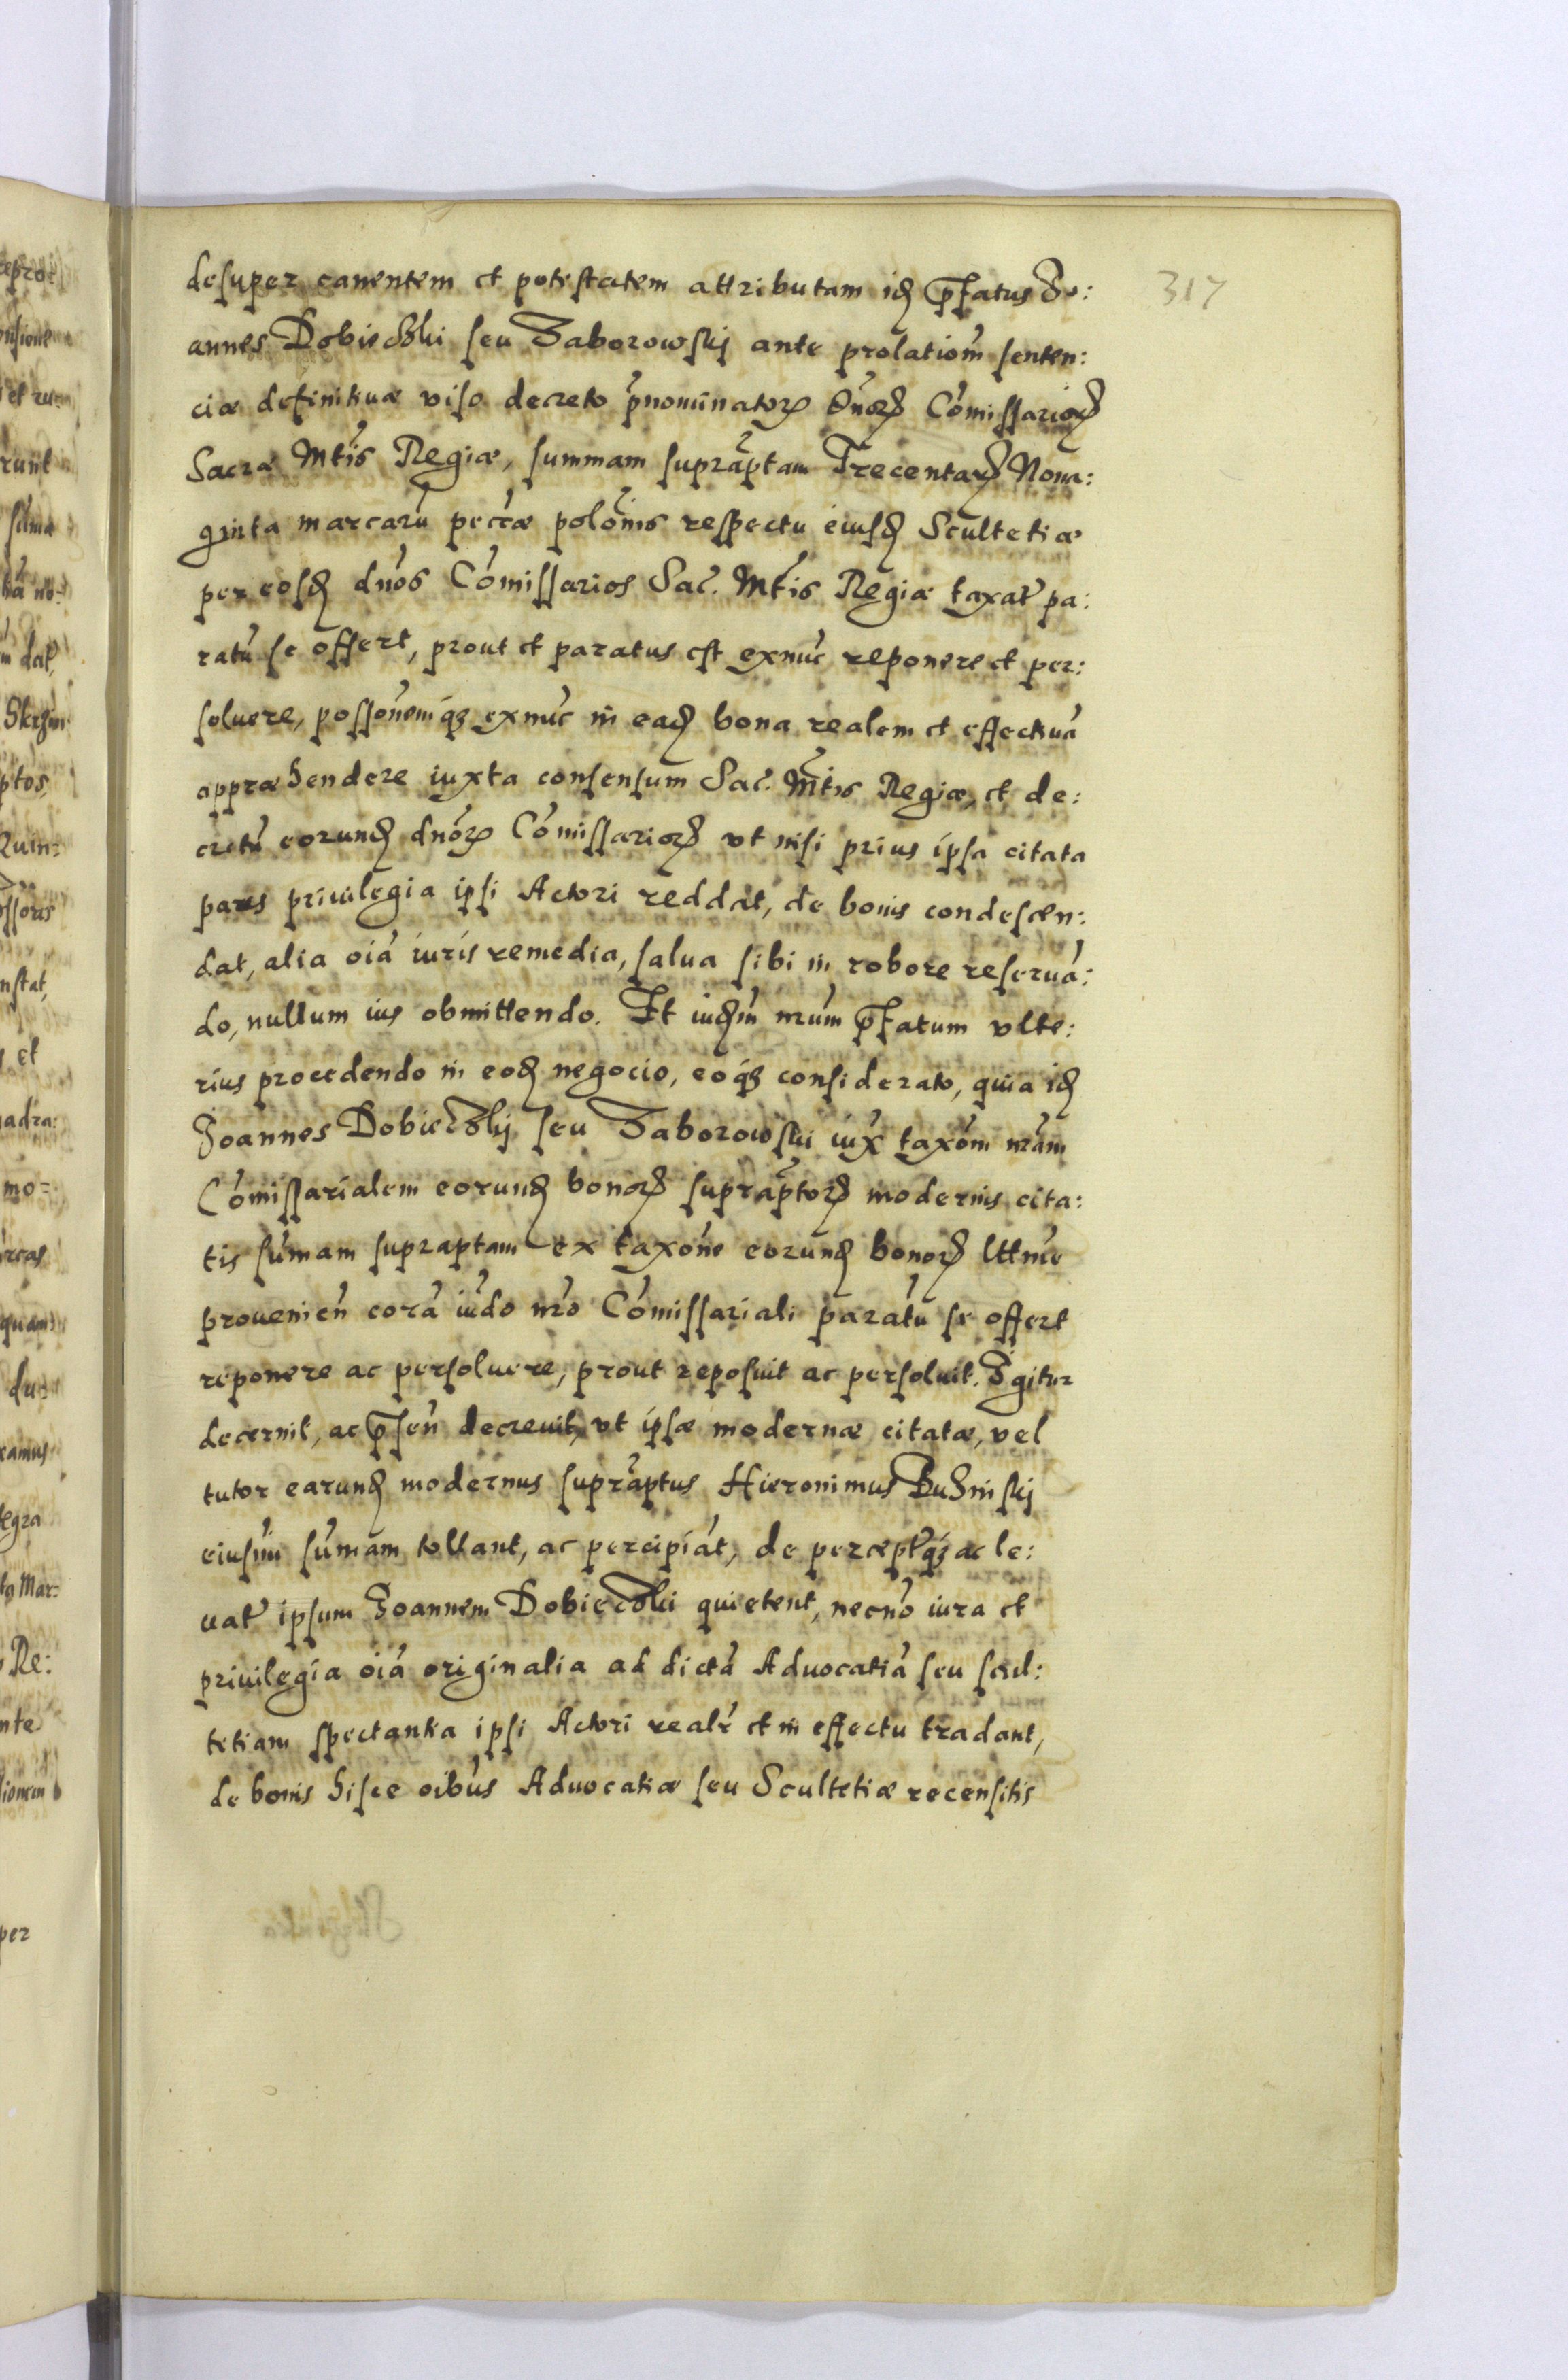 desuper canentem et potestatem attributam id. p̃fatus Jo:
annes Dobieczki seu Zaborowskj ante prolatioṁ senten:
ciæ definitiuæ viso decreto p̃nominatorꝝ Dn̄orꝝ Cōmissariorꝝ
Sacræ Mt̃is Regiæ, summam supraptam Trecentarꝝ Nona:
ginta marcarū pec̃æ polōnis respectu eiusd. Scultetiæ
per eosd. dn̄os Cōmissarios Sac̃. Mt̃is Regiæ taxat̃ pa:
ratū se offert, prout et paratus est exnūc reponere et per:
soluere, possōnemq̃ꝫ exnūc in ead. bona realem et effectiuā
appræhendere iuxta consensum Sac̃. Mt̃is Regiæ, et de:
cretū eorund. dn̄orꝝ Cōmissariorꝝ vt nisi prius ipsa citata
pars priuilegia ipsi Actori reddat, de bonis condescen:
dat, alia oīa iuris remedia, salua sibi in robore reseruā:
do, nullum ius obmittendo. Et iud̃m nr̃um p̃fatum vlte:
rius procedendo in eod. negocio, eoq̃ꝫ considerato, quia id.
Joannes Dobieczkj seu Zaborowski iux̃ taxōm nr̃am
Cōmissarialem eorund. bonorꝝ supraptorꝝ modernis cita:
tis sūmam supraptam ex taxōne eorund. bonorꝝ
prouenień corā iūdo nr̃o Cōmissariali paratū se offert
reponere ac persoluere, prout reposuit ac persoluit. Igitur
decernit, ac p̃seń decreuit, vt ipsæ modernæ citatæ, vel
tutor earund. modernus supraptus Hieronimus Buzinskj
eiusm̃ sūmam tollant, ac percipiāt, de percept̃q̃ꝫ ac le:
uat̃ ipsum Joannem Dobieczki quietent, necnō iura et
priuilegia oīa originalia ad dictā Aduocatiā seu scul:
tetiam spectantia ipsi Actori realr̃ et in effectu tradant,
de bonis hisce oībus Aduocatiæ seu Scultetiæ recensitis
317